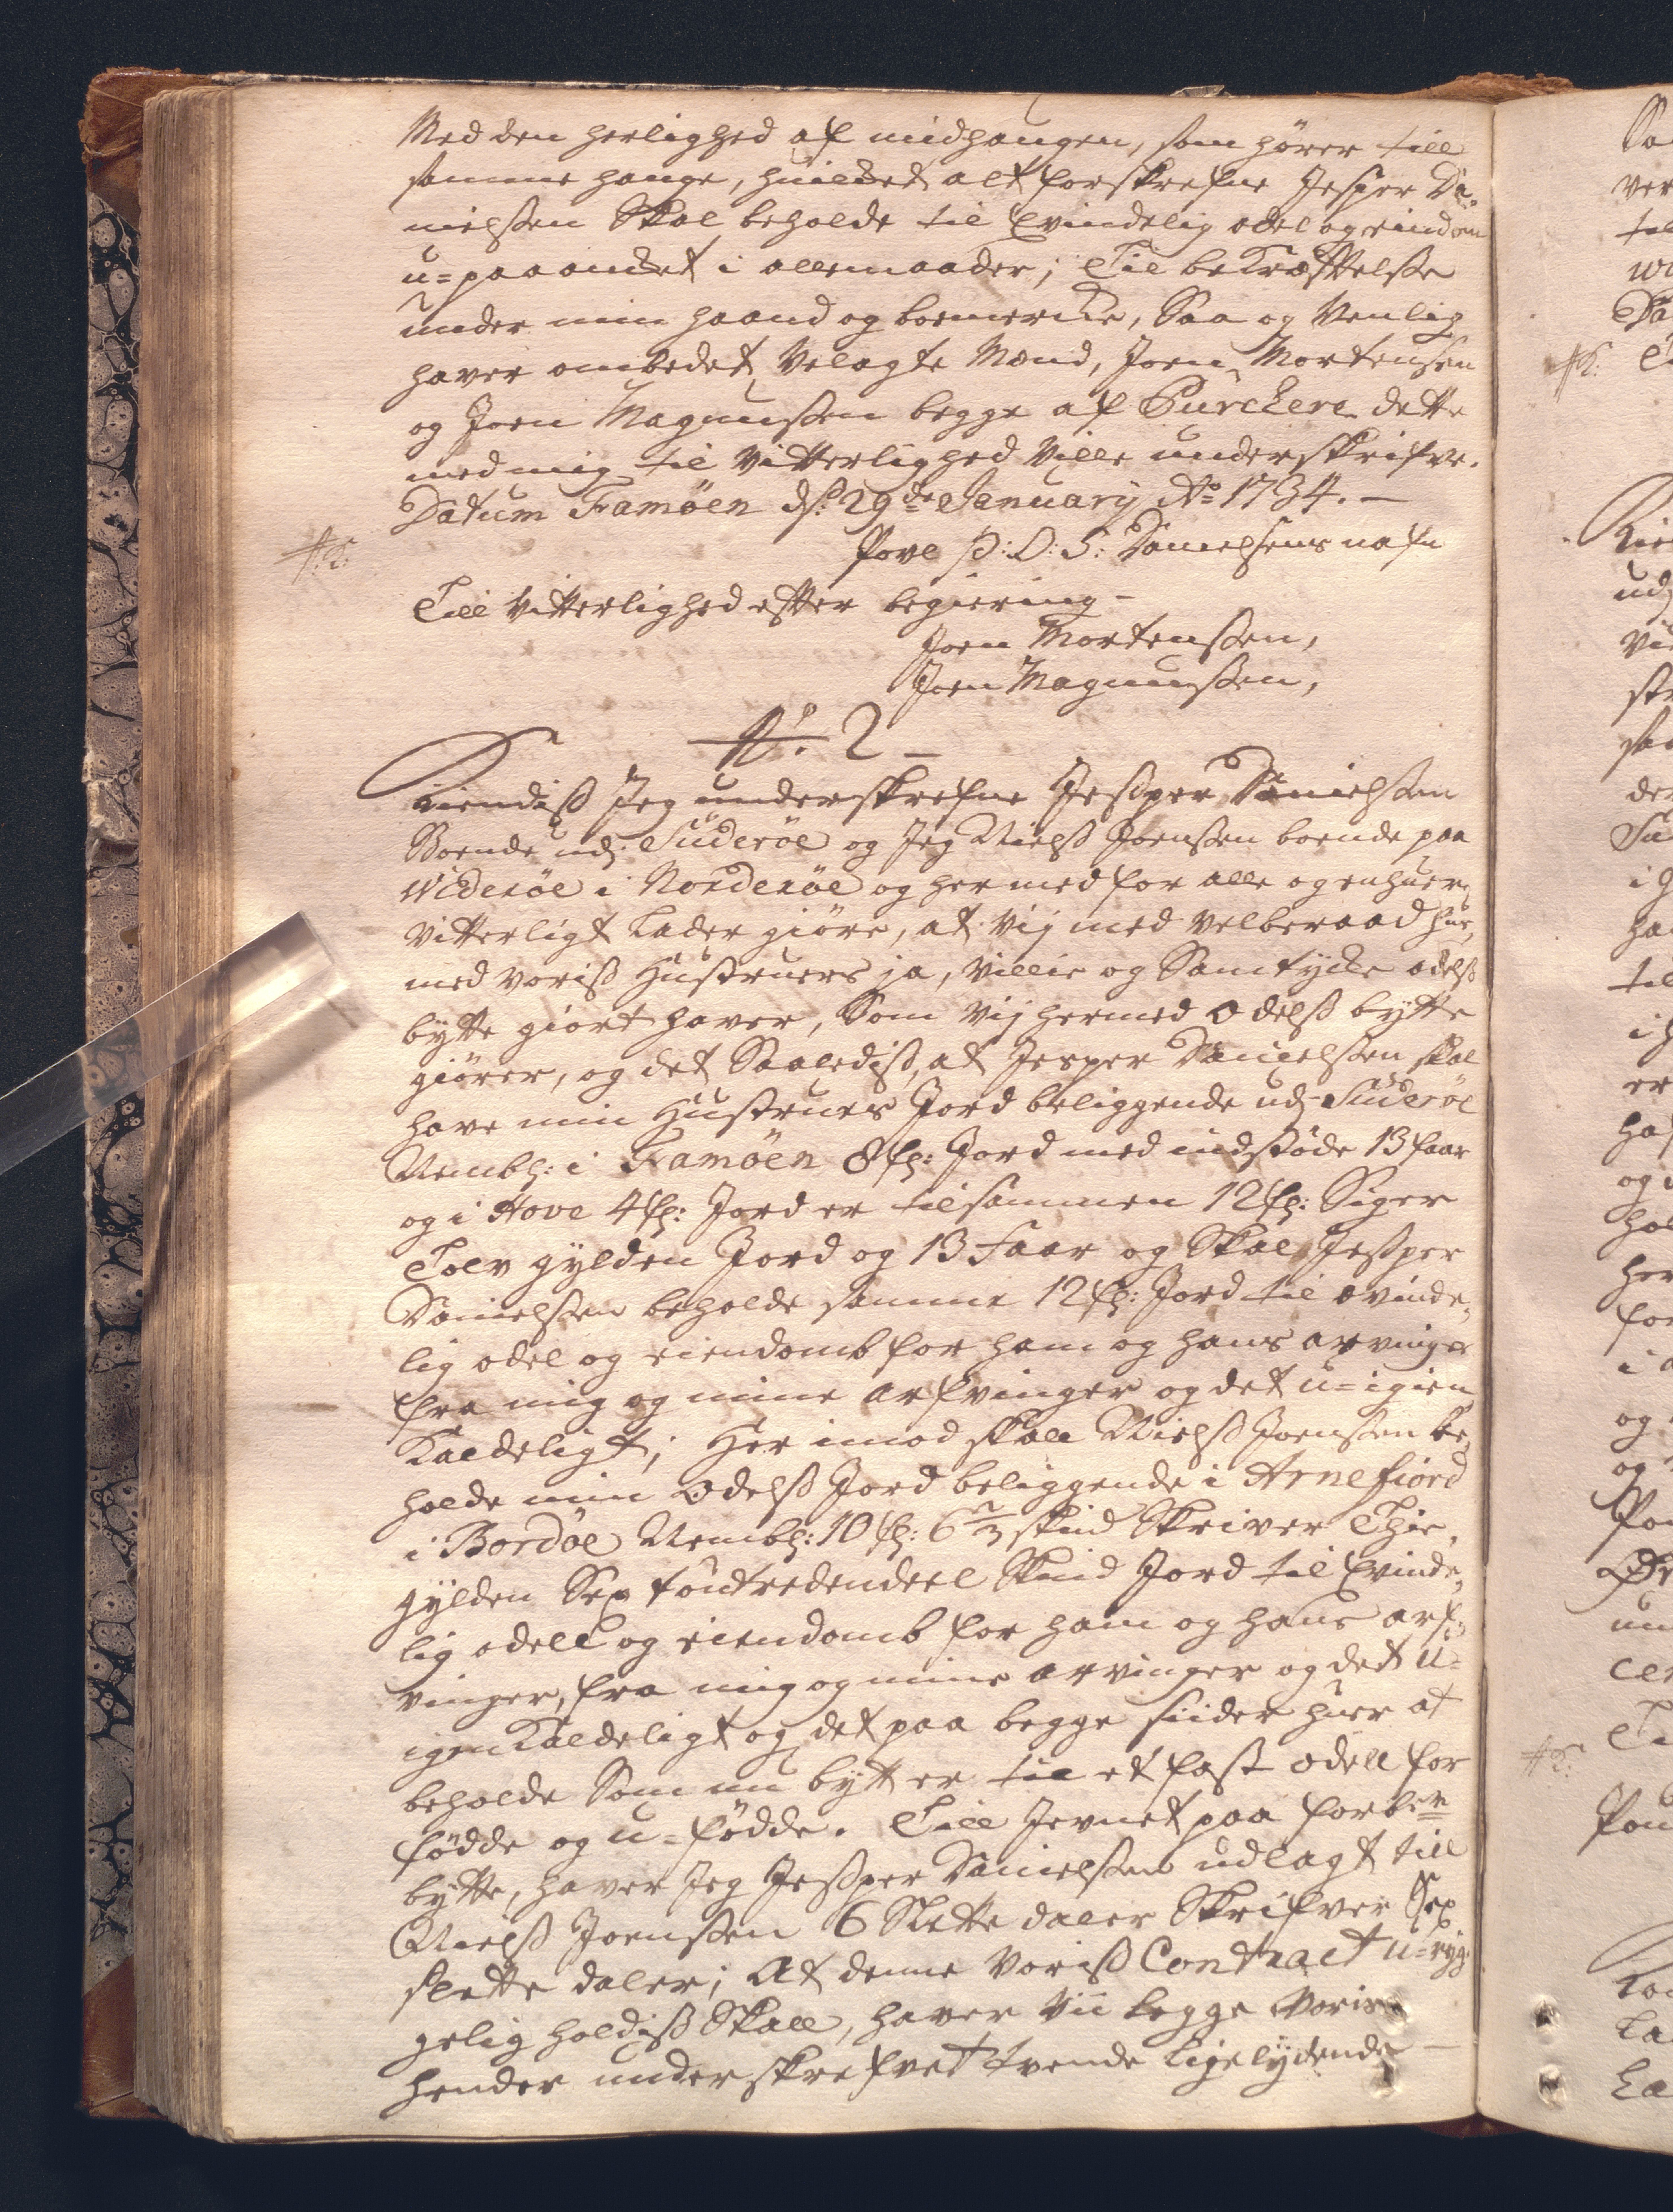 Med den herlighed af midhaugen, som hører till
samme hauge, huilcket alt forskrefne Jesper Da,,
nielssen Skal beholde til Evindelig odel og eindom
u=paaancket i allemaader; Til bekræfftelsse
under min haand og boemercke, Saa og Venlig
haver ombedet Velagte Mænd, Joen Mortenssen
og Joen Magnussen begge af Purckere dette
med mig til Vitterlighed Ville underskrifve.
Datum Famöen ds: 29de January Ao 1734. —
Povl P: D: S: Danielsens nafn
Till Vitterlighed effter begiering –
Joen Mortenssen,
Joen Magnussen,
No. 2 –
Kiendiss Jeg underskrefne Jessper Danielssen
Boende udj Suderöe og Jeg Nielss Joenssen boende paa
Wideröe i Norderöe og hermed for alle og enhuer
Vitterligt Lader giöre, at vij med velberaad hue,
med voriss Hustruers ja, Villie og Samtycke odelss
bytte giort haver, Som Vij hermed Odelss bytte
giörer, og det Saalediss, at Jesper Danielssen skal
have min Hustrues Jord beliggende udj Suderöe
Nembl: i Famöen 8 fl: Jord med indstöde 13 faar
og i Hove 4 fl: Jord er tilsammen 12 fl: Siger
Tolv gylden Jord og 13 Faar og Skal Jessper
Danielssen beholde samme 12 fl: Jord til evinde,,
lig odel og eiendomb for ham og hans arvinger
fra mig og mine arfvinger og det u=igien
Kaldeligt; Her imod skall Nielss Joenssen be,,
holde min Odelss Jord beliggende i Arnefiord
i Bordöe Nembl: 10 fl: 6 2/3 skind Skriver Thie,
gylden Sex toutredendeel Skind Jord til Evinde,,
lig odell og eiendomb for ham og hans arf,,
vinger, fra mig og mine arvinger og det u=
igenKaldeligt og det paa begge siider huer at
beholde Som nu bytt er til et fast odell for
födde og u=födde. Till Jevnet paa forben
bytte, haver Jeg Jessper Danielssen udlagt till
Nielss Joenssen 6 Slette daler Skrifver Sex
slette daler; At denne Voriss Contract u=ryg,,
gelig holdiss Skall, haver Vii begge Voriss
hender underskrefvet tvende Ligelydende —